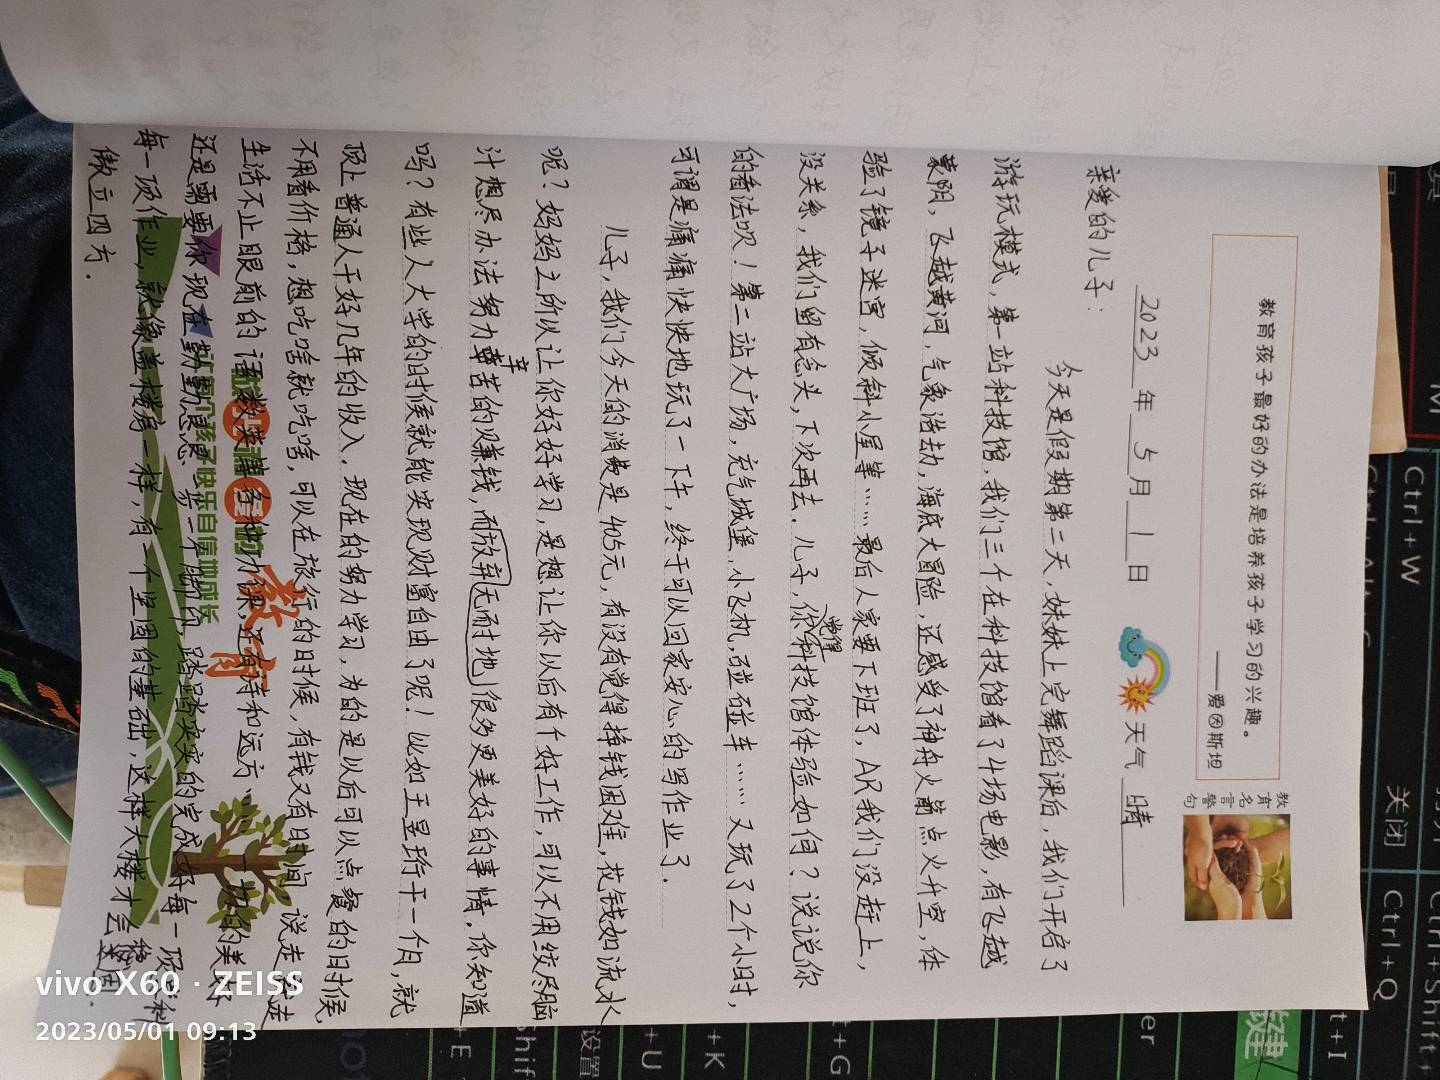 教育孩子最好的办法是培养孩子学习的兴趣。
——爱因斯坦
教育名言警句
2023年5月1日 天气 晴
亲爱的儿子：
今天是假期第三天，妹妹上完舞蹈课后，我们开启了
游玩模式，第一站科技馆，我们三个在科技馆看了4场电影，有飞越
蒙阴，飞越黄河，气象浩劫，海底大冒险，还感受了神舟火箭点火升空，体
验了镜子迷宫，倾斜小屋等……最后人家要下班了，AR我们没赶上，
没关系，我们留有念头，下次再去．儿子，你觉得科技馆体验如何？说说你
的看法呗！第二站大广场，充气城堡，小飞机，碰碰车……又玩了2个小时，
可谓是痛痛快快地玩了一下午，终于可以回家安心的写作业了．
儿子，我们今天的消费是405元，有没有觉得挣钱困难，花钱如流水
呢？妈妈之所以让你好好学习，是想让你以后有个好工作，可以不用绞尽脑
汁想尽办法努力辛苦的赚钱，而放弃无耐地很多更美好的事情．你知道
吗？有些人大学的时候就能实现财富自由了呢！比如王昱珩干一个月，就
顶上普通人干好几年的收入．现在的努力学习，为的是以后可以点餐的时候，
不用看价格，想吃啥就吃啥，可以在旅行的时候，有钱又有时间，说走就走
生活不止眼前的语数英等各种功课，还有诗和远方……一切的美好
还是需要你现在勤勤恳恳、一步一个脚印，踏踏实实的完成好每一项
每一项作业，就像盖楼房一样，有一个坚固的基础，这样大楼才会稳固．
傲立四方．
教育
孩子快乐自信地成长
Ctrl+W
关闭
Ctrl+Q
设置
vivo X60 · ZEISS
2023/05/01 09:13